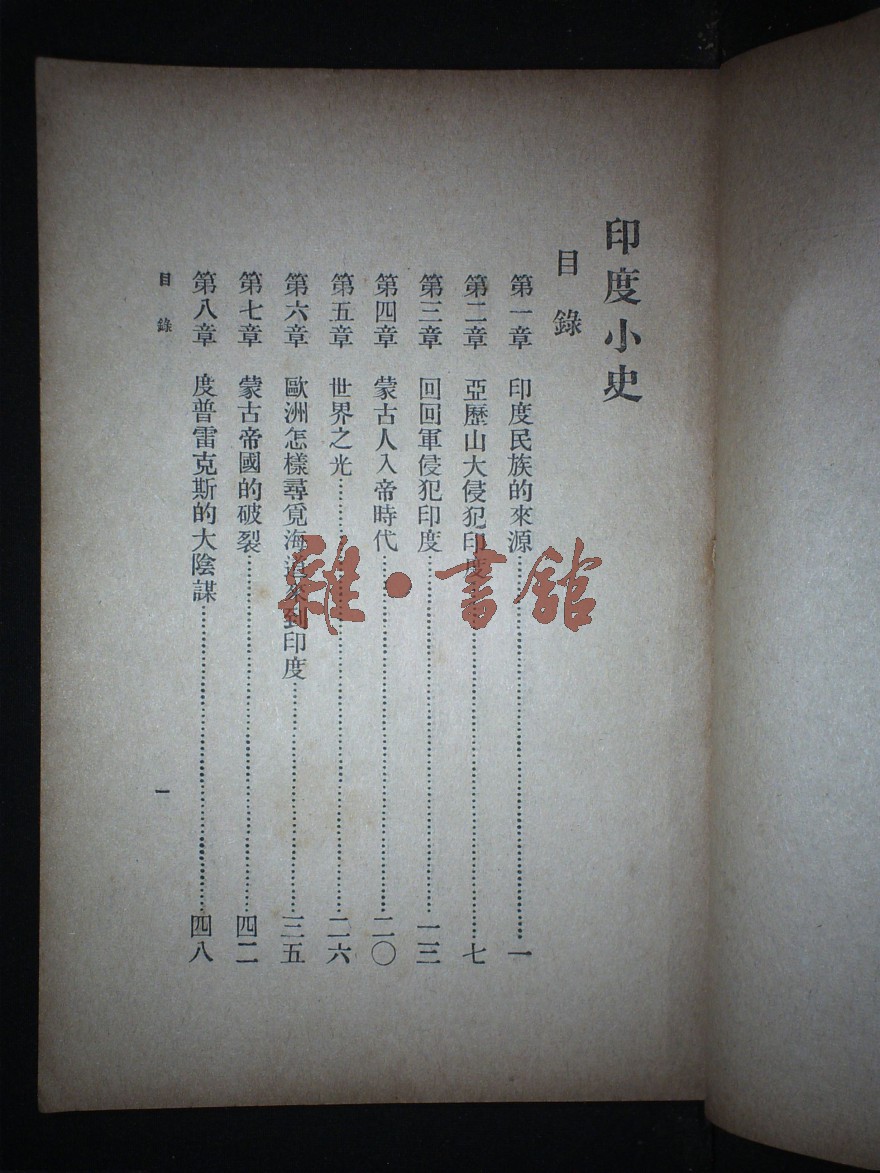 印度小史
目錄
第一章 印度民族的來源…………一
第二章 亞歷山大侵犯印度…………七
第三章 回回軍侵犯印度…………一三
第四章 蒙古人入帝時代…………二〇
第五章 世界之光…………二六
第六章 歐洲怎樣尋覓海道來到印度…………三五
第七章 蒙古帝國的破裂…………四二
第八章 度普雷克斯的大陰謀…………四八
目錄
一
雜·書館